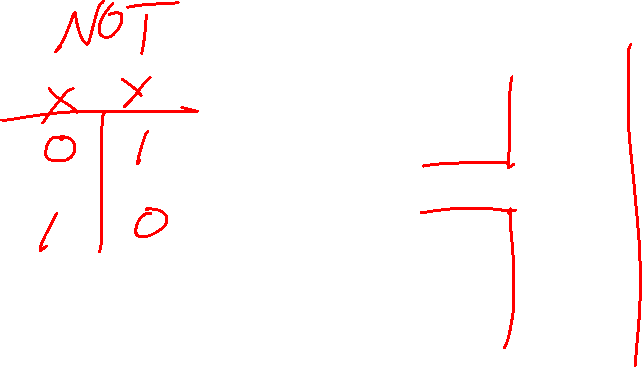 NOT
X Y
0 1
1 0